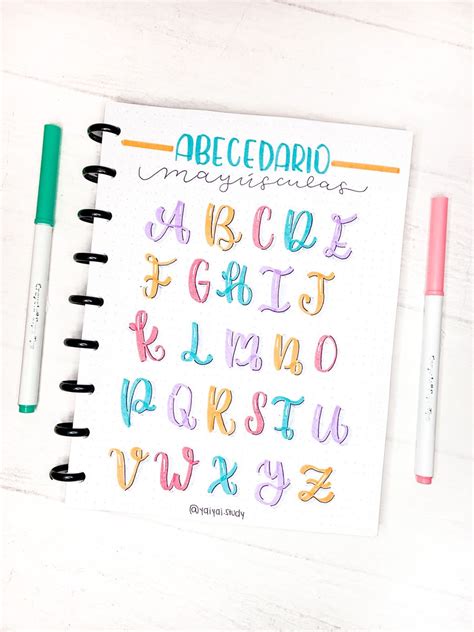 ABECEDARIO
mayúsculas
A B C D E
F G H I J
K L M N O
P Q R S T U
V W X Y Z
@yaiyai.study